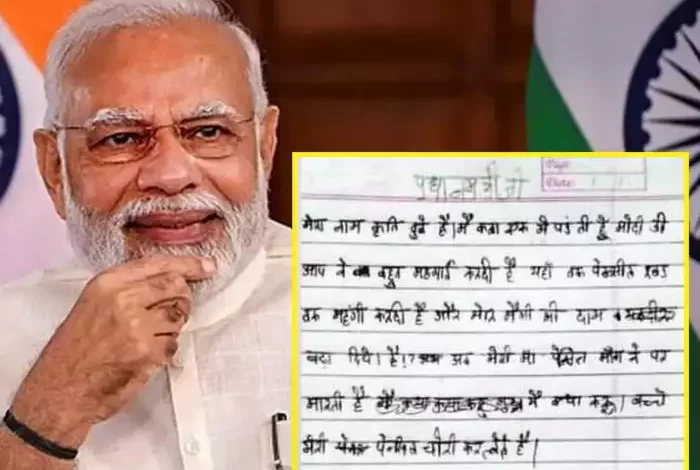 Date: / /
प्रधानमत्री जी
मेरा नाम कृति दुबे है। मै कक्षा एक मे पढती हू मोदी जी
आप ने बहुत महगाई करदी है यहाँ तक पेनसील रबड
तक महंगी करदी है और मेरि मैगी की दाम
बढा दिये। है।? अब मेरी मा पेन्सिल मॉग ने पर
मारती है मै क्या करू। बच्चे
मेरी पेनसिल चोरी कर लेते है।